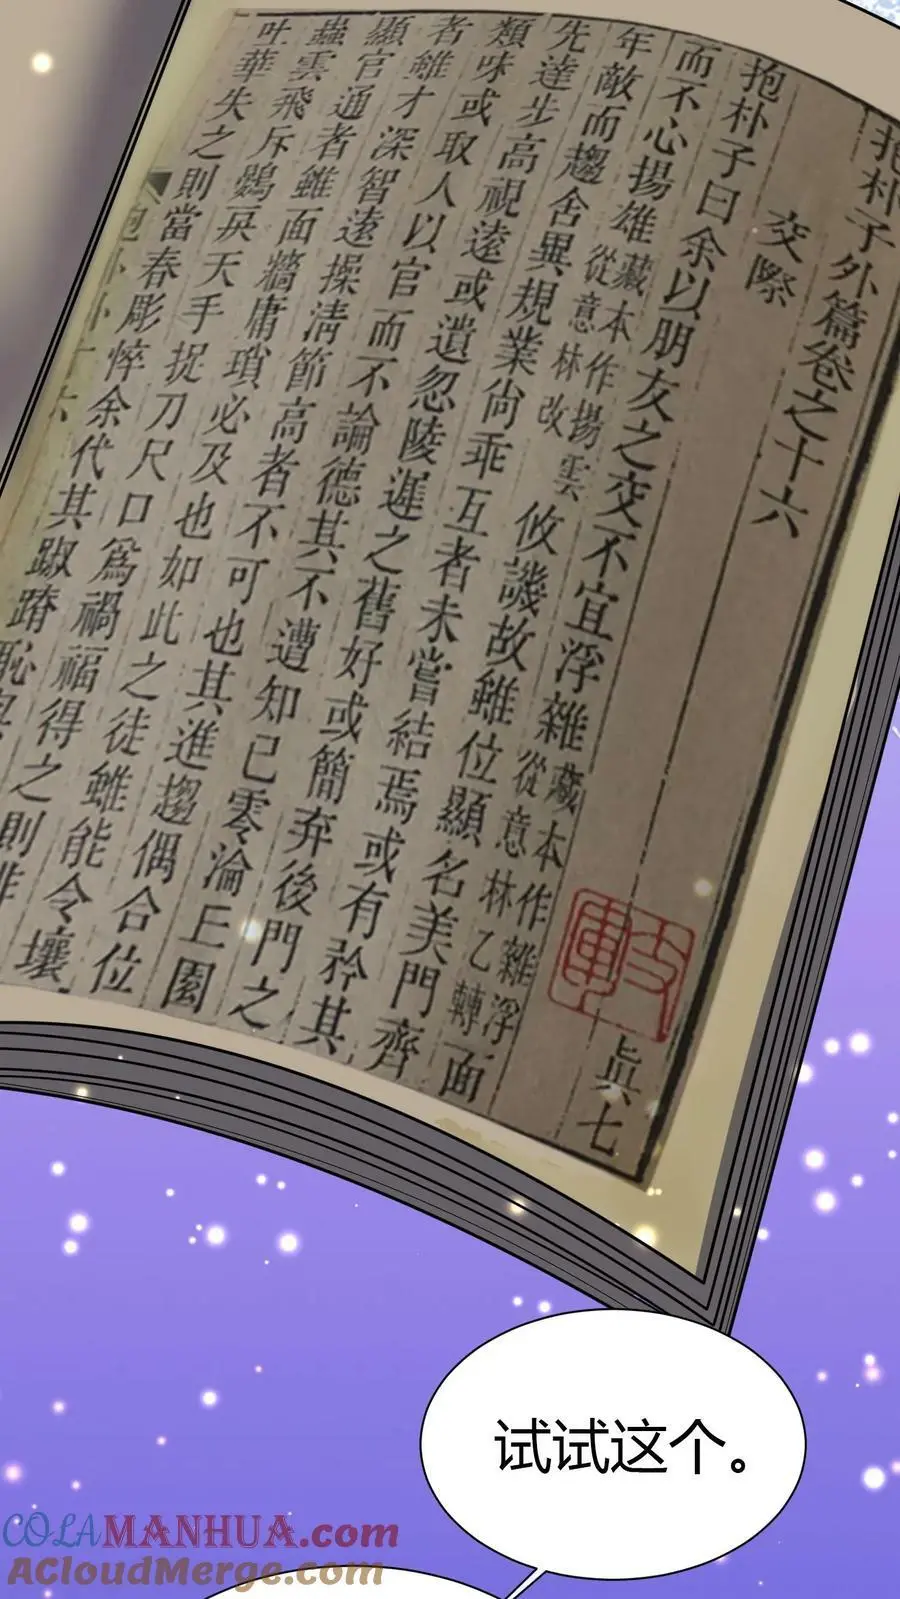 抱朴子外篇卷之十六
交際
抱朴子曰余以朋友之交不宜浮雜藏本作雜浮從意林乙轉面
而不心揚雄藏本作揚雲從意林改攸譏故雖位顯名美門齊
年敵而趨舍異規業尚乖互者未嘗結焉或有矜其
先達步高視遠或遺忽陵遲之舊好或簡弃後門之
類味或取人以官而不論德其不遭知己零淪丘園
者雖才深智遠操清節高者不可也其進趨偶合位
顯官通者雖面牆庸瑣必及也如此之徒雖能令壤
蟲雲飛斥鷃戾天手捉刀尺口爲禍福得之則排
吐華失之則當春彫悴余代其踧踖恥與
貞七
试试这个。
COLAMANHUA.com
ACloudMerge.com